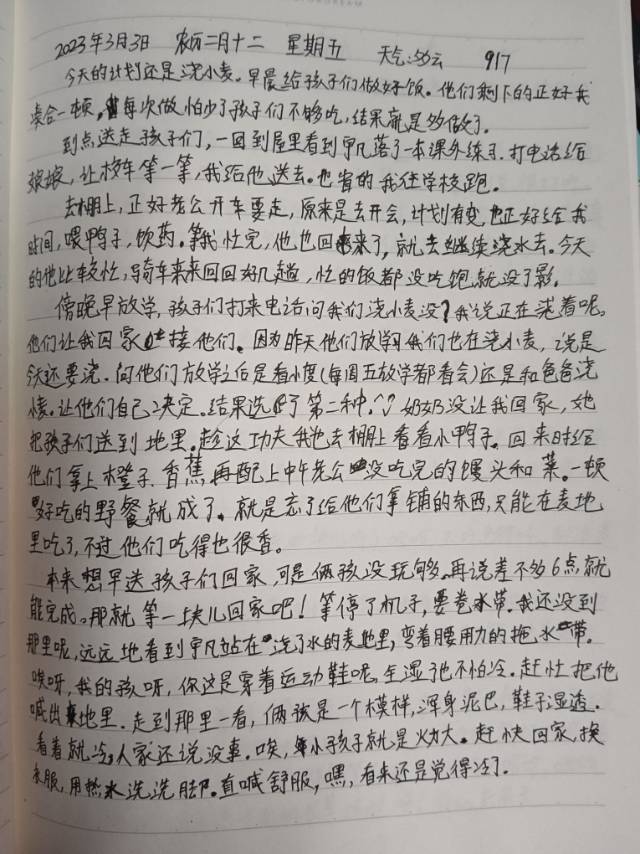 2023年3月3日 农历二月十二 星期五 天气:多云 917
今天的计划还是浇小麦。早晨给孩子们做好饭。他们剩下的正好我
凑合一顿,每次做怕少了孩子们不够吃,结果就是多做了。
到点送走孩子们,一回到屋里看到宇凡落了一本课外练习.打电话给
娘娘,让校车等一等,我给他送去。也省的我往学校跑。
去棚上,正好老公开车要走,原来是去开会,计划有变,也正好给我
时间,喂鸭子,饮药。等我忙完,他也回来了,就去继续浇水去。今天
的他比较忙,骑车来来回回好几趟,忙的饭都没吃饱,就没了影。
傍晚早放学,孩子们打来电话问我们浇小麦没?我说正在浇着呢。
他们让我回家去接他们。因为昨天他们放学我们也在浇小麦,说是
今天还要浇.问他们放学之后是看小度(每周五放学都看会)还是和爸爸浇
小麦。让他们自己决定.结果选了第二种.^^ 奶奶没让我回家,她
把孩子们送到地里。趁这功夫我也去棚上看看小鸭子。回来时给
他们拿上橙子.香蕉.再配上中午老公没吃完的馒头和菜。一顿
好吃的野餐就成了。就是忘了给他们拿铺的东西,只能在麦地
里吃了,不过他们吃得也很香。
本来想早送孩子们回家,可是俩孩没玩够,再说差不多6点就
能完成。那就等一块儿回家吧!等停了机子,要卷水带。我还没到
那里呢,远远地看到宇凡站在浇了水的麦地里,弯着腰用力的拖水带.
唉呀,我的孩呀,你这是穿着运动鞋呢,全湿了也不怕冷.赶忙把他
喊出地里.走到那里一看,俩孩是一个模样,浑身泥巴,鞋子湿透.
看着就冷,人家还说没事.唉,小孩子就是火力大。赶快回家,换
衣服,用热水洗洗脚.直喊舒服,嘿,看来还是觉得冷了.